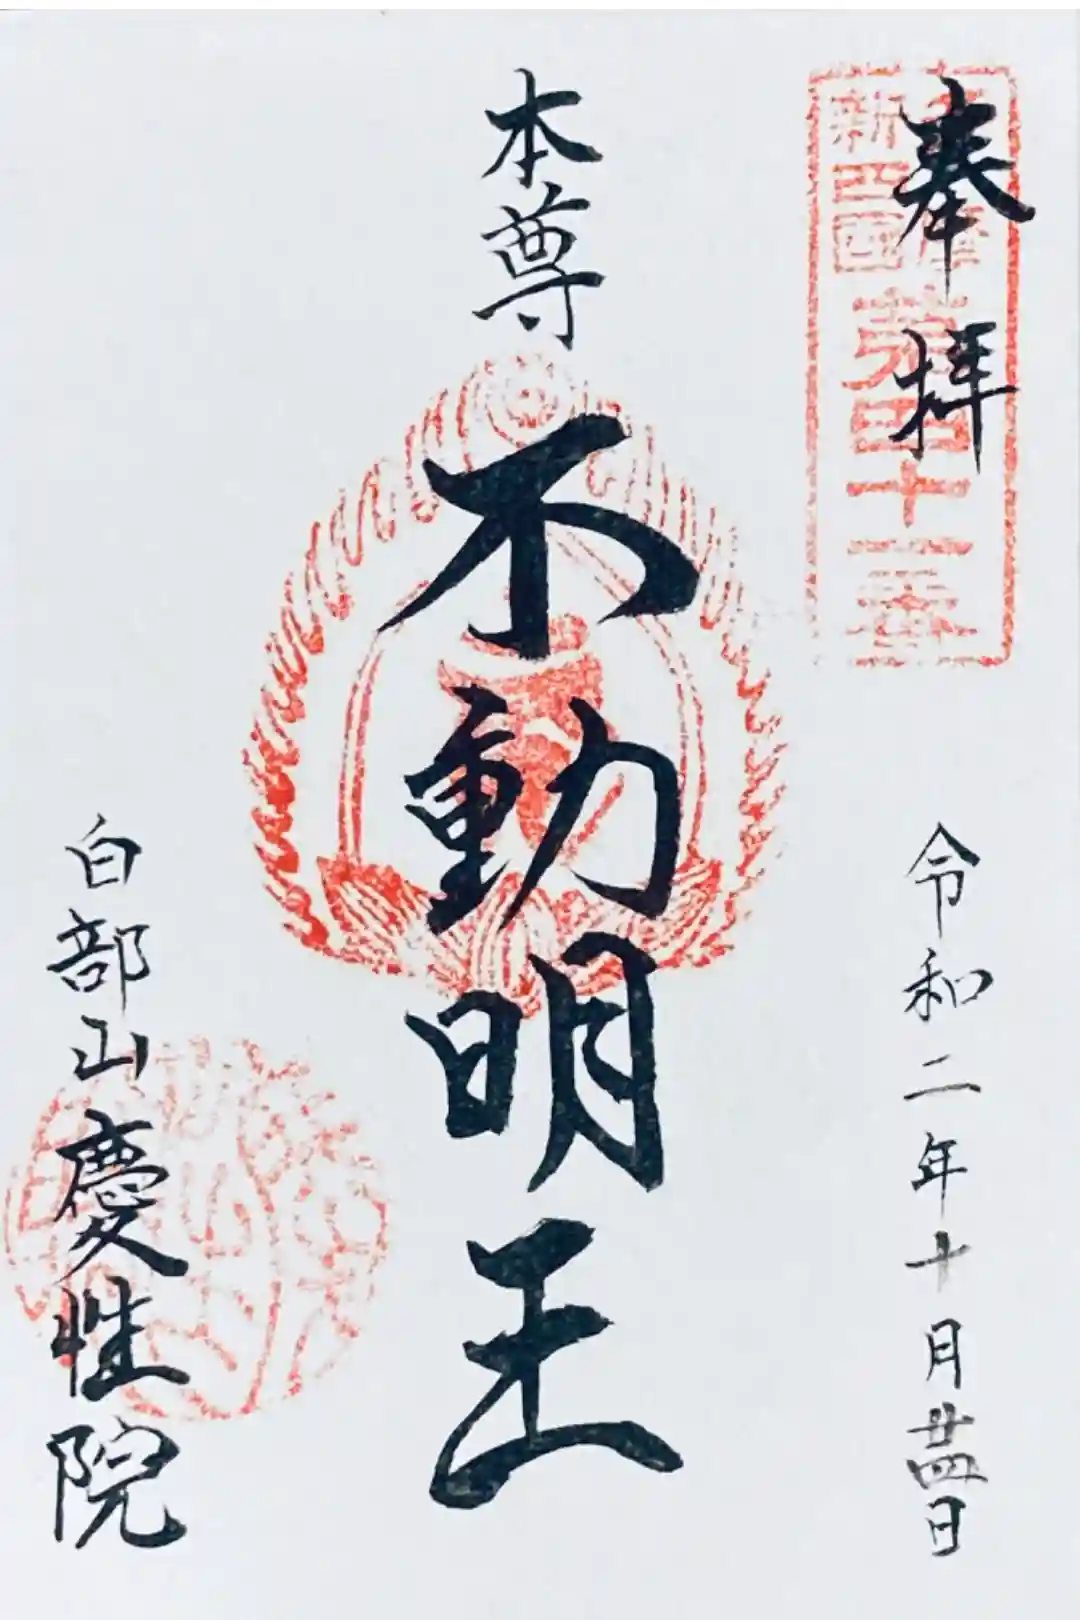 奉拝
新四国
第四十一番
令和二年十月廿四日
本尊
不動明王
白部山慶性院